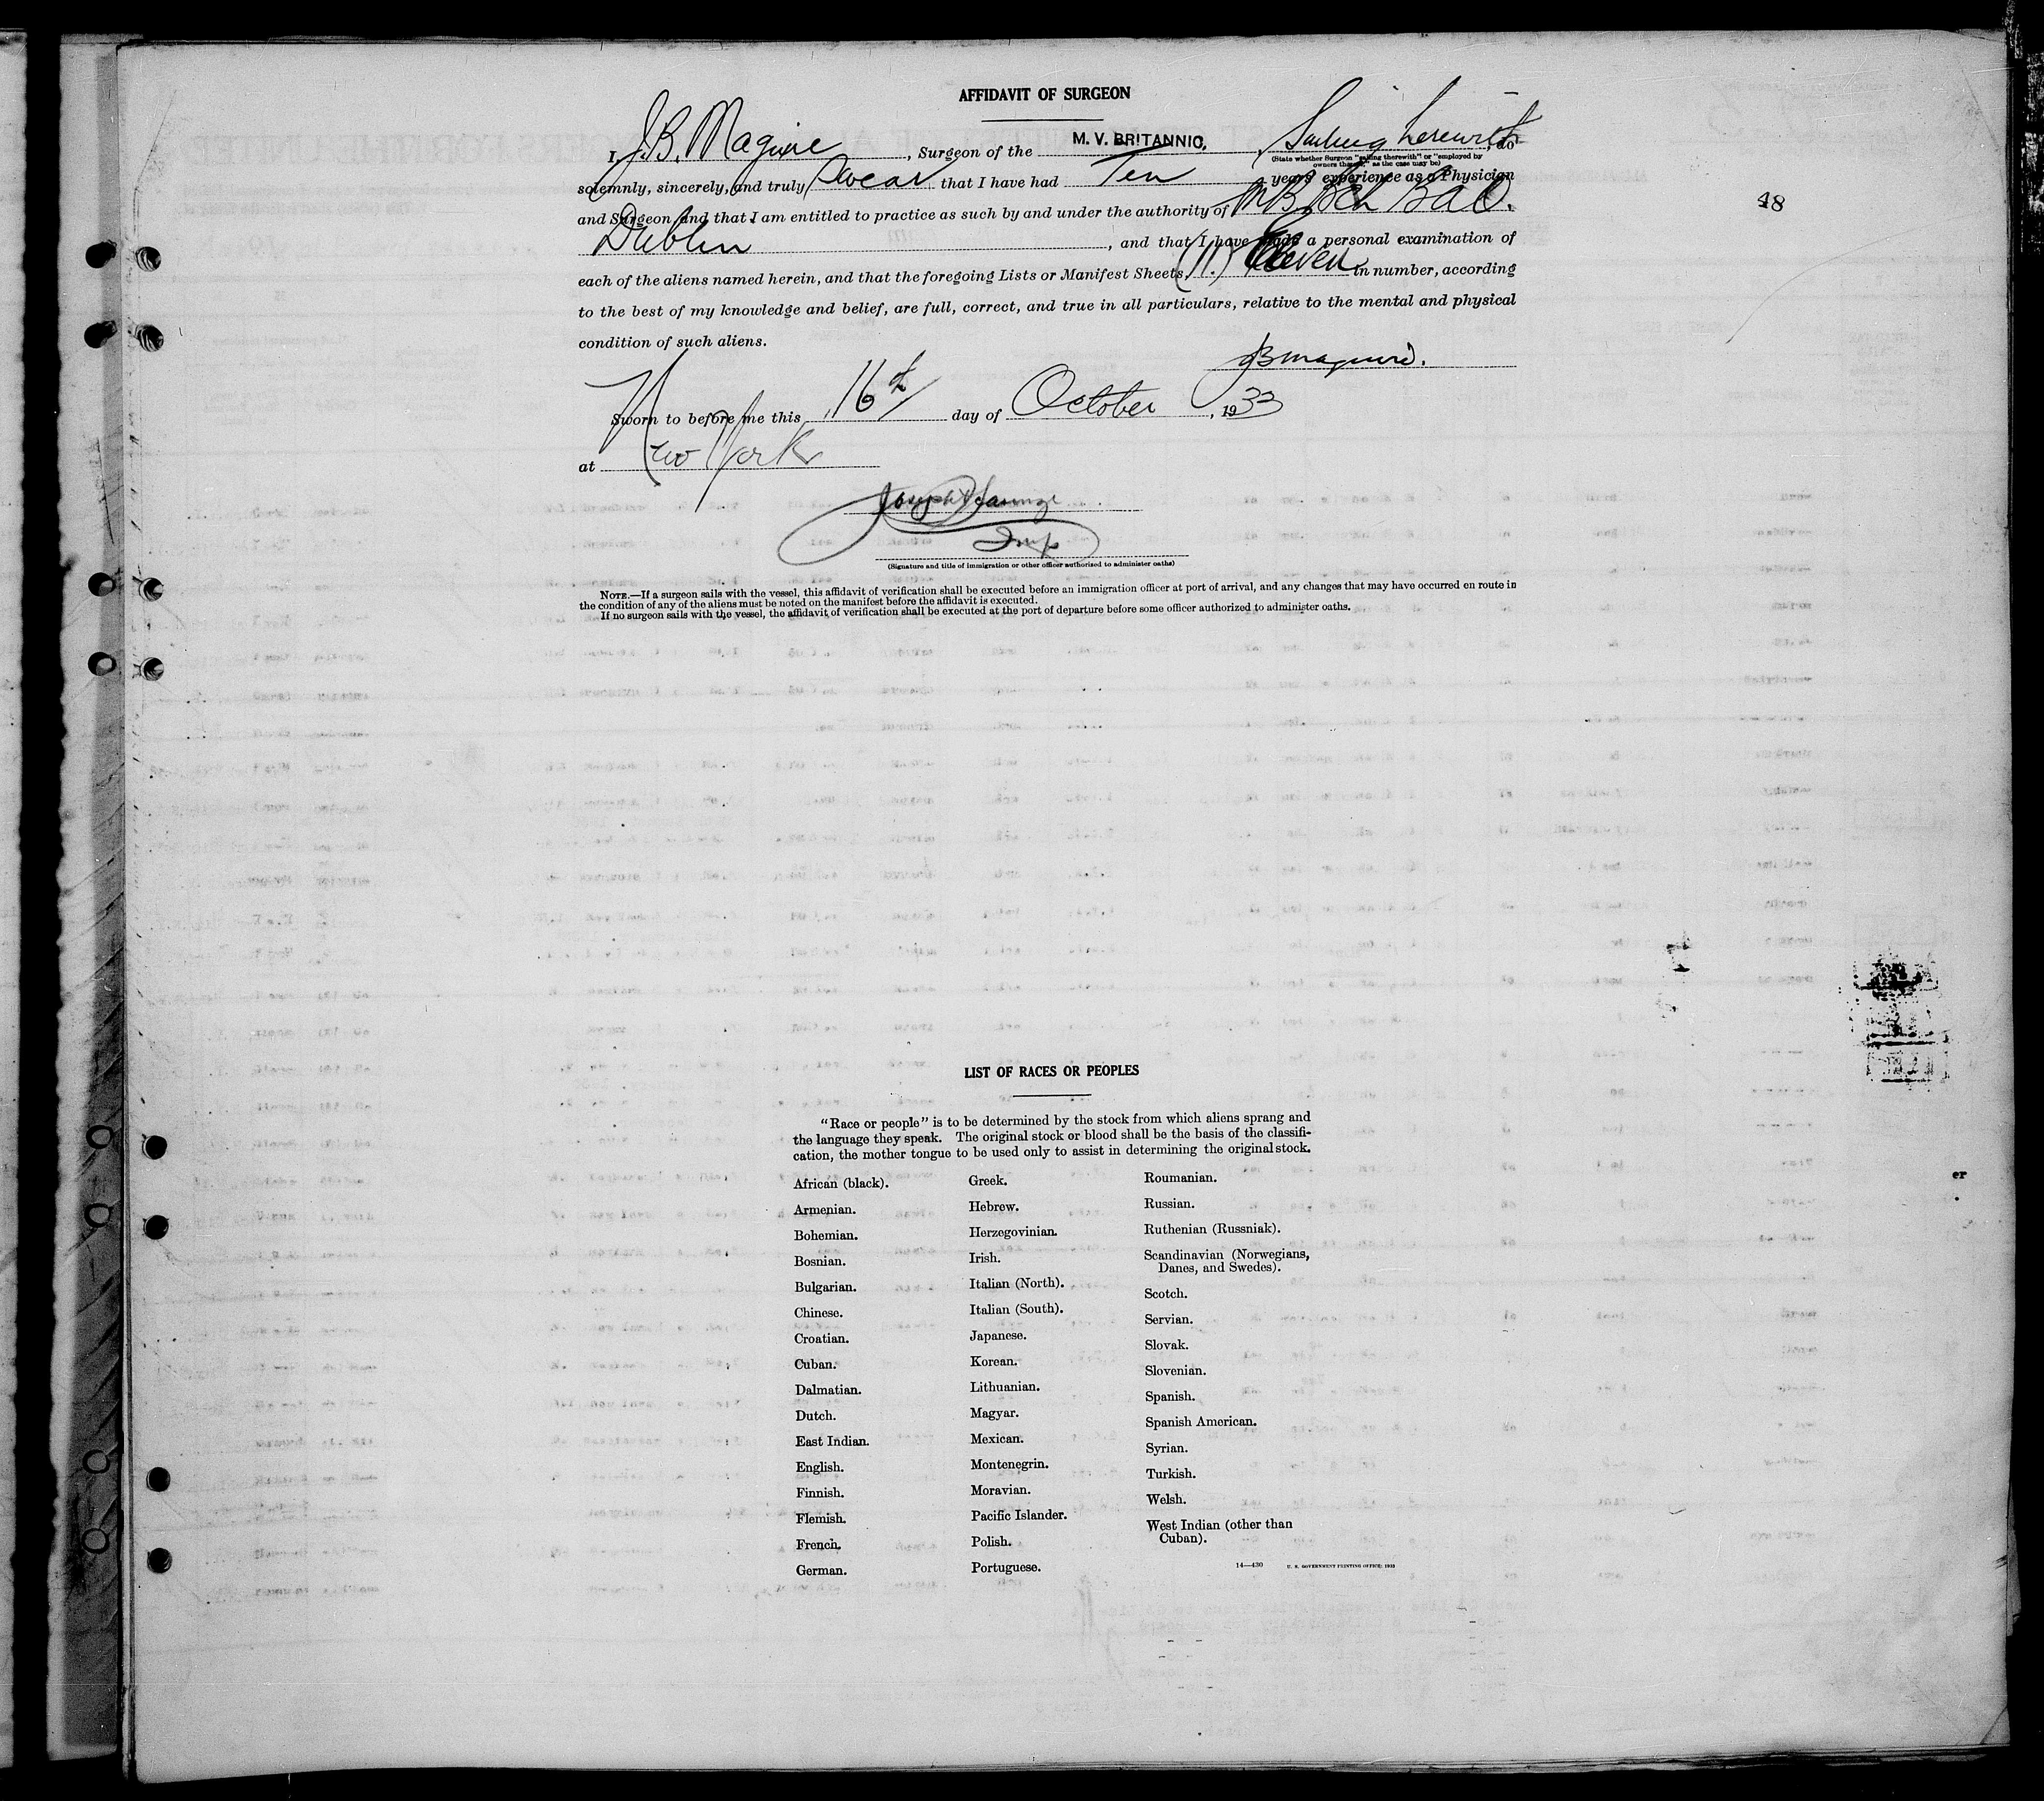 AFFIDAVIT OF SURGEON
I, J. B. Maguire, Surgeon of the M. V. BRITANNIC, Sailing herewith, do
(State whether Surgeon "sailing therewith" or "employed by
owners thereof," as the case may be)
solemnly, sincerely, and truly Swear that I have had Ten years' experience as a Physician
and Surgeon and that I am entitled to practice as such by and under the authority of M B. Bch BaO.
Dublin, and that I have made a personal examination of
each of the aliens named herein, and that the foregoing Lists or Manifest Sheets, (11.) Eleven in number, according
to the best of my knowledge and belief, are full, correct, and true in all particulars, relative to the mental and physical
condition of such aliens.
JB Maguire.
Sworn to before me this 16th day of October, 1933
at New York
Joseph
Insp
(Signature and title of immigration or other officer authorized to administer oaths)
NOTE.—If a surgeon sails with the vessel, this affidavit of verification shall be executed before an immigration officer at port of arrival, and any changes that may have occurred en route in
the condition of any of the aliens must be noted on the manifest before the affidavit is executed.
If no surgeon sails with the vessel, the affidavit of verification shall be executed at the port of departure before some officer authorized to administer oaths.
48
LIST OF RACES OR PEOPLES
"Race or people" is to be determined by the stock from which aliens sprang and
the language they speak. The original stock or blood shall be the basis of the classifi-
cation, the mother tongue to be used only to assist in determining the original stock.
African (black).
Armenian.
Bohemian.
Bosnian.
Bulgarian.
Chinese.
Croatian.
Cuban.
Dalmatian.
Dutch.
East Indian.
English.
Finnish.
Flemish.
French.
German.
Greek.
Hebrew.
Herzegovinian.
Irish.
Italian (North).
Italian (South).
Japanese.
Korean.
Lithuanian.
Magyar.
Mexican.
Montenegrin.
Moravian.
Pacific Islander.
Polish.
Portuguese.
Roumanian.
Russian.
Ruthenian (Russniak).
Scandinavian (Norwegians,
Danes, and Swedes).
Scotch.
Servian.
Slovak.
Slovenian.
Spanish.
Spanish American.
Syrian.
Turkish.
Welsh.
West Indian (other than
Cuban).
14—430 U. S. GOVERNMENT PRINTING OFFICE: 1933
er